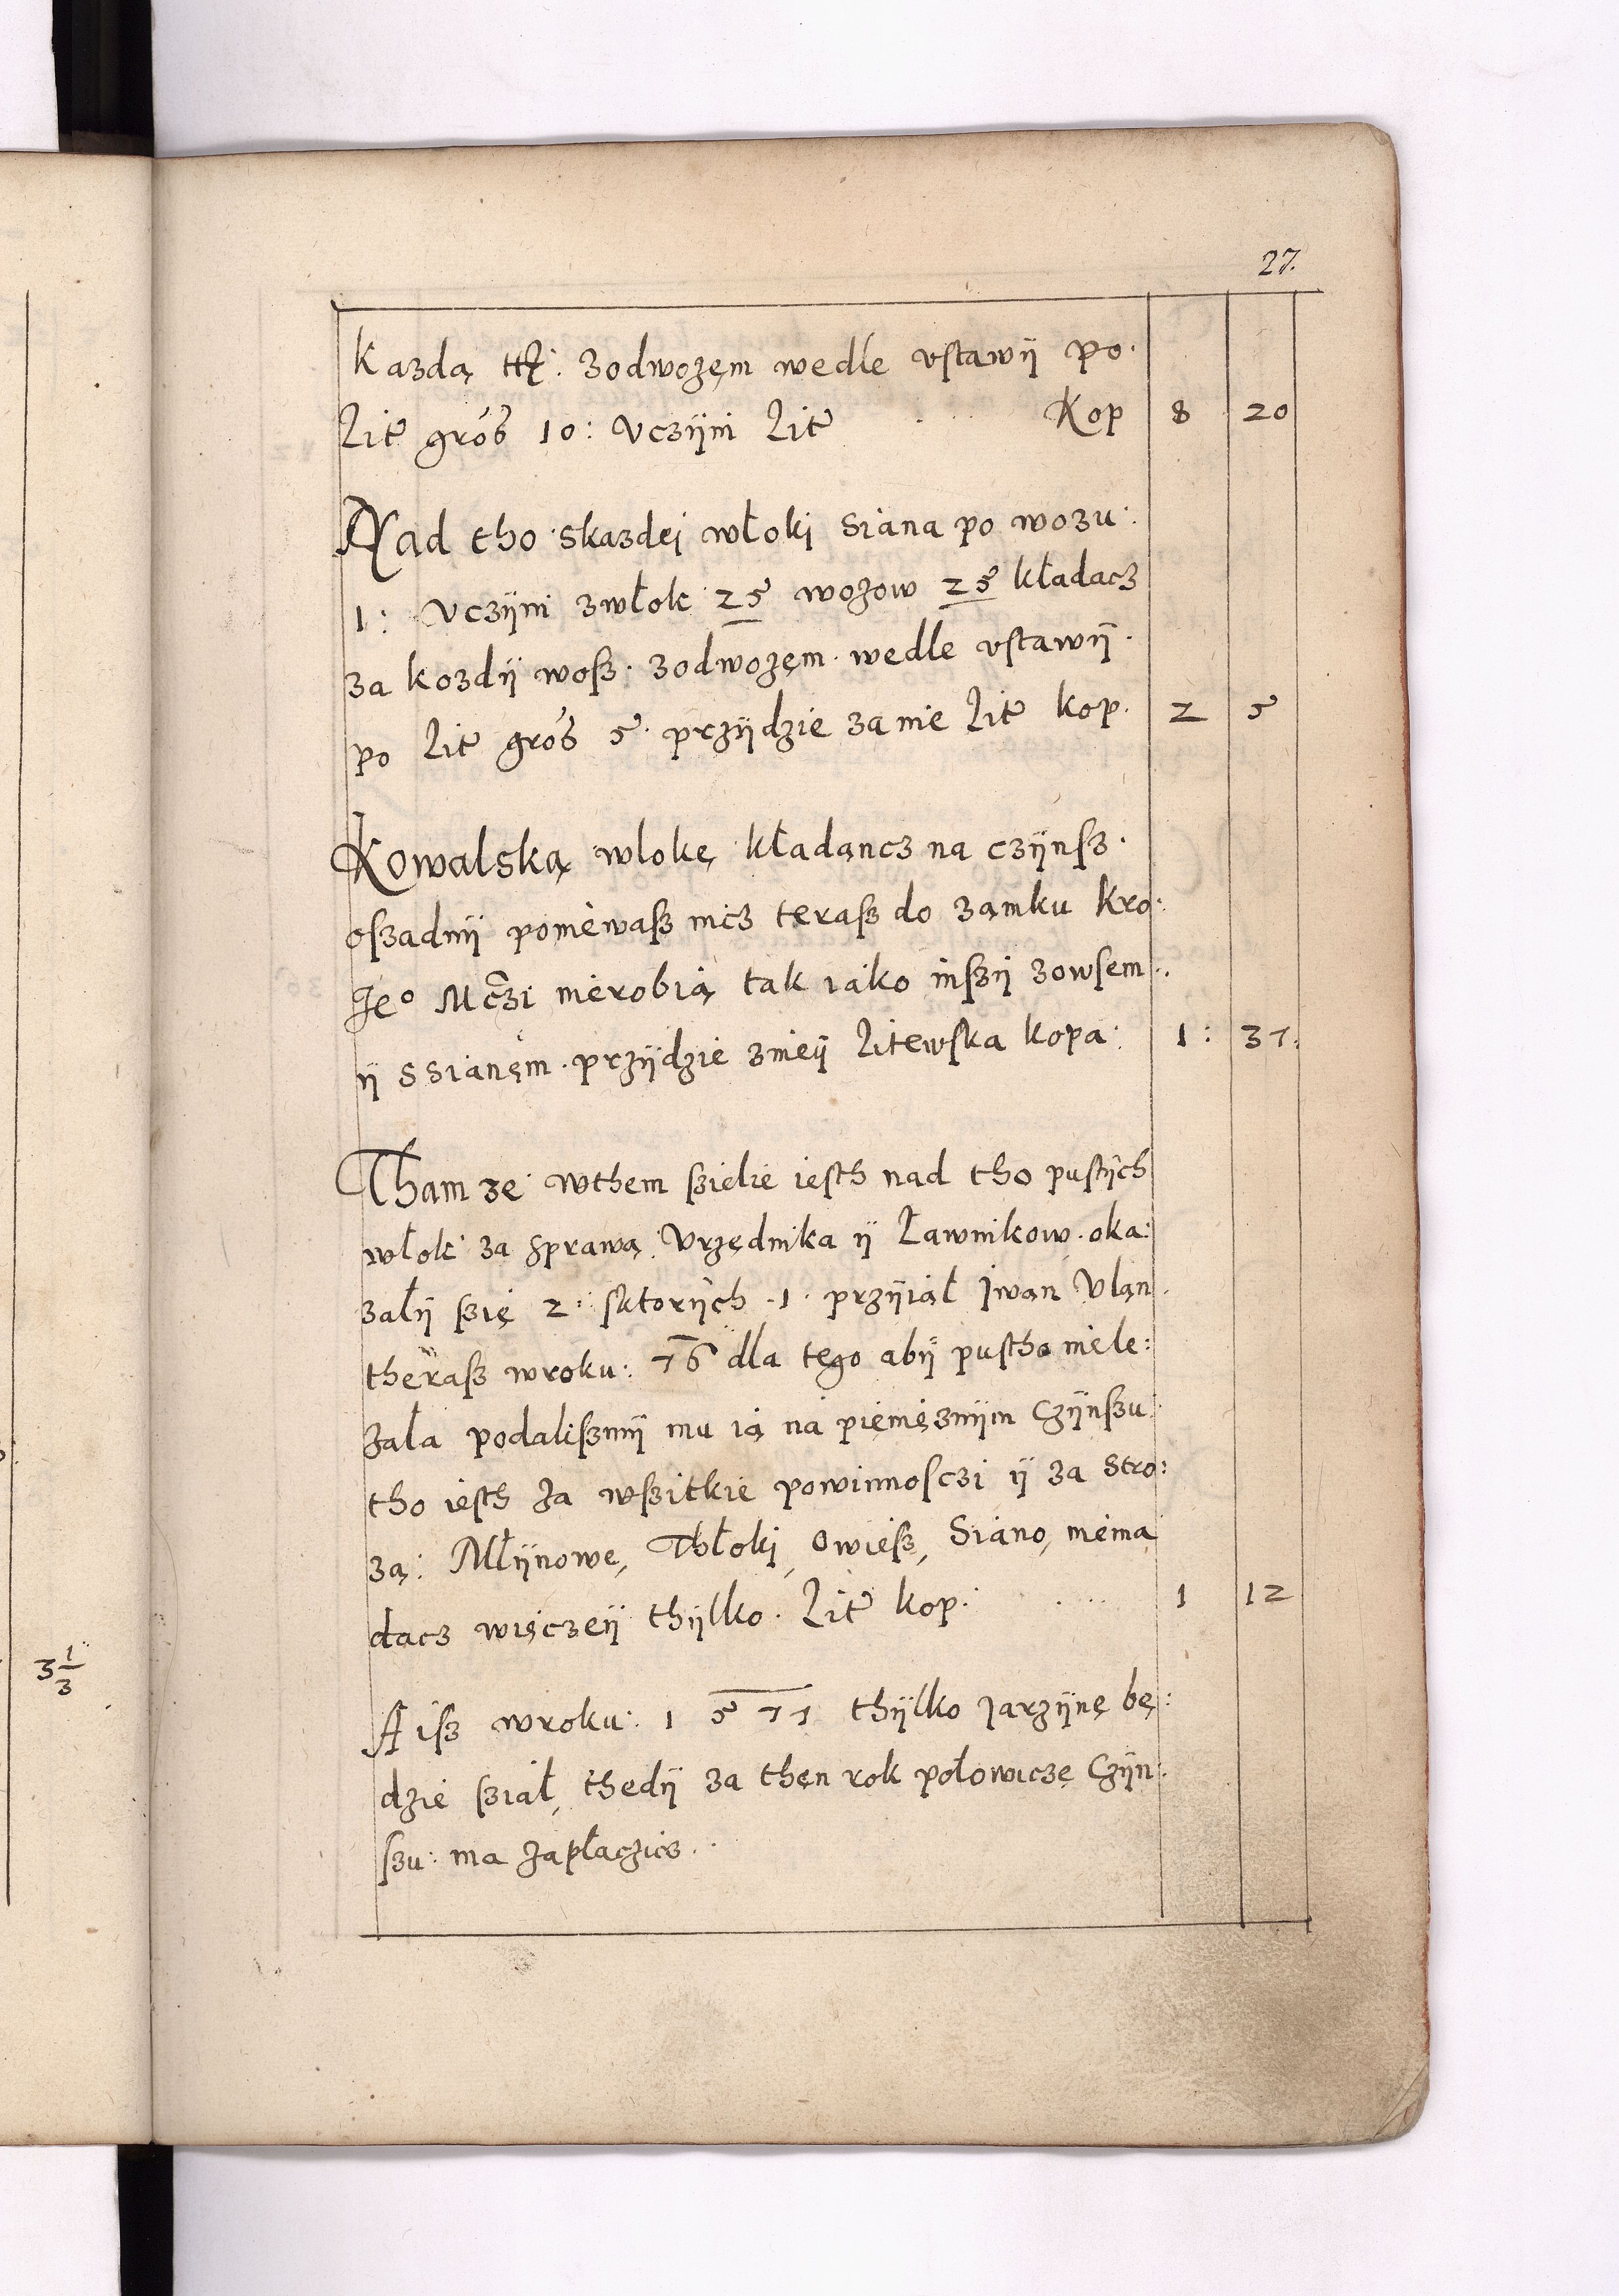 27.
Kazdą ttł: zodwozęm wedle vstawÿ po.
Lit gros 10: Vczÿni Lit Kop 8 20
Nad tho skazdei włoki Siana po wozu.
1: Vczÿni zwłok 25 wozow 25 kładacz
za kozdÿ woß. zodwozęm. wedle vstawÿ.
po Lit grosz 5. przÿdzie za nie Lit kop. 2 5
Kowalską wlokę kładąncz na czÿnsz.
oszadnÿ poniewasz nicz terasz do zamku Kro:
Je° Mczi nierobią tak iako inszÿ zowsem.
ÿ SSianęm. przÿdzie znieÿ Litewska kopa. 1: 37:
Tham ze wthem szielie iesth nad tho pustÿch
włok za sprawą Vrzędnika ÿ Ławnikow. oka:
załÿ szię 2: sktorÿch .1. przÿiął Jwan Vlan.
therasz wroku: 76 dla tego abÿ pustho niele:
zała podaliszmÿ mu ią na pięnięznÿm Czÿnszu.
tho iesth za wszitkie powinnosczi ÿ za Stro:
zą: Młÿnowe, Tłoki, Owiesz, Siano, niema
dacz więczeÿ thÿlko. Lit kop. 1 12
A isz wroku: 1577 thÿlko Jarzÿnę bę:
dzie sział, thedÿ za thęn rok połowiczę Czÿn:
szu: ma zapłaczicz.
3 1/3